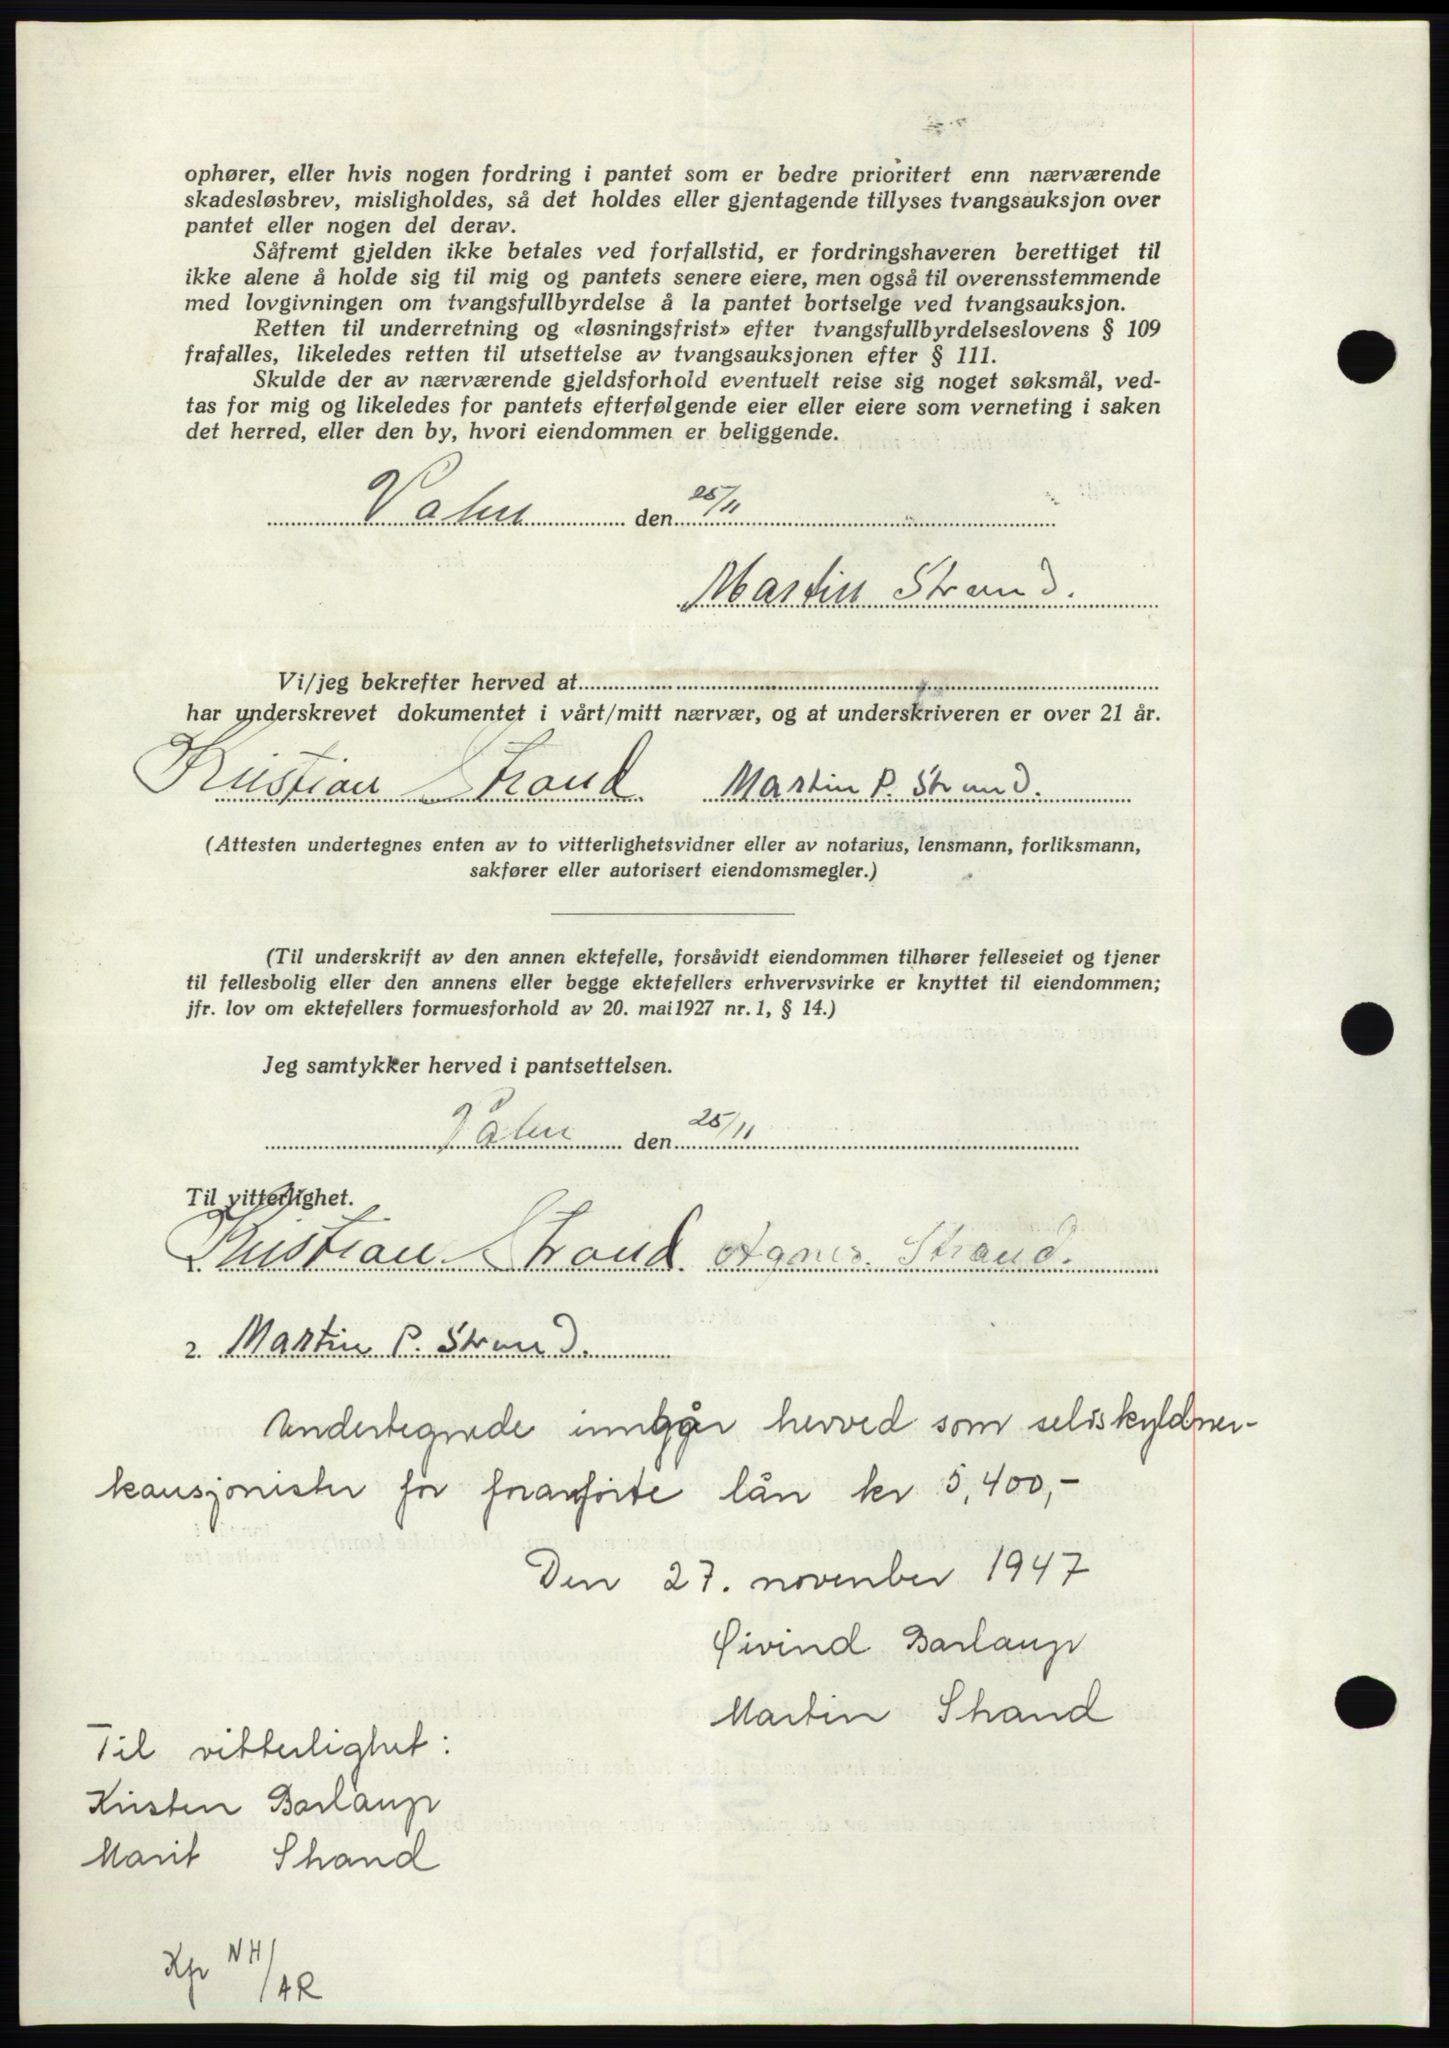 ophører, eller hvis nogen fordring i pantet som er bedre prioritert enn nærværende
skadesløsbrev, misligholdes, så det holdes eller gjentagende tillyses tvangsauksjon over
pantet eller nogen del derav.
Såfremt gjelden ikke betales ved forfallstid, er fordringshaveren berettiget til
ikke alene å holde sig til mig og pantets senere eiere, men også til overensstemmende
med lovgivningen om tvangsfullbyrdelse å la pantet bortselge ved tvangsauksjon.
Retten til underretning og «løsningsfrist» efter tvangsfullbyrdelseslovens § 109
frafalles, likeledes retten til utsettelse av tvangsauksjonen efter § 111.
Skulde der av nærværende gjeldsforhold eventuelt reise sig noget søksmål, ved-
tas for mig og likeledes for pantets efterfølgende eier eller eiere som verneting i saken
det herred, eller den by, hvori eiendommen er beliggende.
den 25/11
Martin Strand.
Vi/jeg bekrefter herved at
har underskrevet dokumentet i vårt/mitt nærvær, og at underskriveren er over 21 år.
Kristian Strand Martin P. Strand.
(Attesten undertegnes enten av to vitterlighetsvidner eller av notarius, lensmann, forliksmann,
sakfører eller autorisert eiendomsmegler.)
(Til underskrift av den annen ektefelle, forsåvidt eiendommen tilhører felleseiet og tjener
til fellesbolig eller den annens eller begge ektefellers erhvervsvirke er knyttet til eiendommen;
jfr. lov om ektefellers formuesforhold av 20. mai 1927 nr. 1, § 14.)
Jeg samtykker herved i pantsettelsen.
den 25/11
Til vitterlighet.
1. Kristian Strand. Agnes Strand.
2. Martin P. Strand.
Undertegnede inngår herved som selvskyldner-
kausjonister for foranførte lån kr 5,400,-
Den 27. november 1947
Øivind Barlaup
Martin Strand
Til vitterlighet:
Kristen Barlaup
Marit Strand
Kp NH/AR